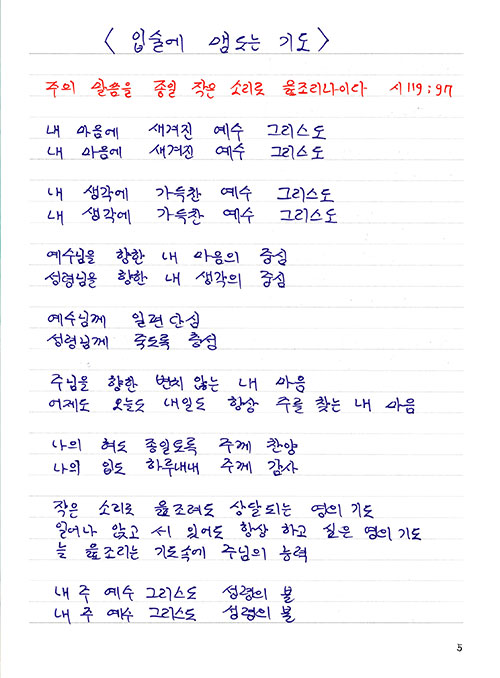 〈 입술에 맴도는 기도 〉
주의 말씀을 종일 작은 소리로 읊조리나이다 시 119 : 97
내 마음에 새겨진 예수 그리스도
내 마음에 새겨진 예수 그리스도
내 생각에 가득찬 예수 그리스도
내 생각에 가득찬 예수 그리스도
예수님을 향한 내 마음의 중심
성령님을 향한 내 생각의 중심
예수님께 일편단심
성령님께 죽도록 충성
주님을 향한 변치 않는 내 마음
어제도 오늘도 내일도 항상 주를 찾는 내 마음
나의 혀도 종일토록 주께 찬양
나의 입도 하루내내 주께 감사
작은 소리로 읊조려도 상달되는 영의 기도
일어나 앉고 서 있어도 항상 하고 싶은 영의 기도
늘 읊조리는 기도속에 주님의 능력
내 주 예수 그리스도 성령의 불
내 주 예수 그리스도 성령의 불
5